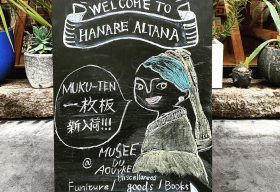 WELCOME TO
HANARE ALTANA
MUKU-TEN
一枚板
新入荷!!!
MUSEE
DU
@ AOUYKE
Miscellaneous
Funiture/ goods/ Books